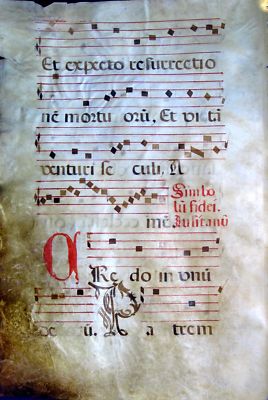 Et expecto resurrectio
nē mortu orū, Et vitā
venturi se culi, A
mē. Simbo
lū fidei
Iusitanū
CRe do in unū
de ū. Pa trem